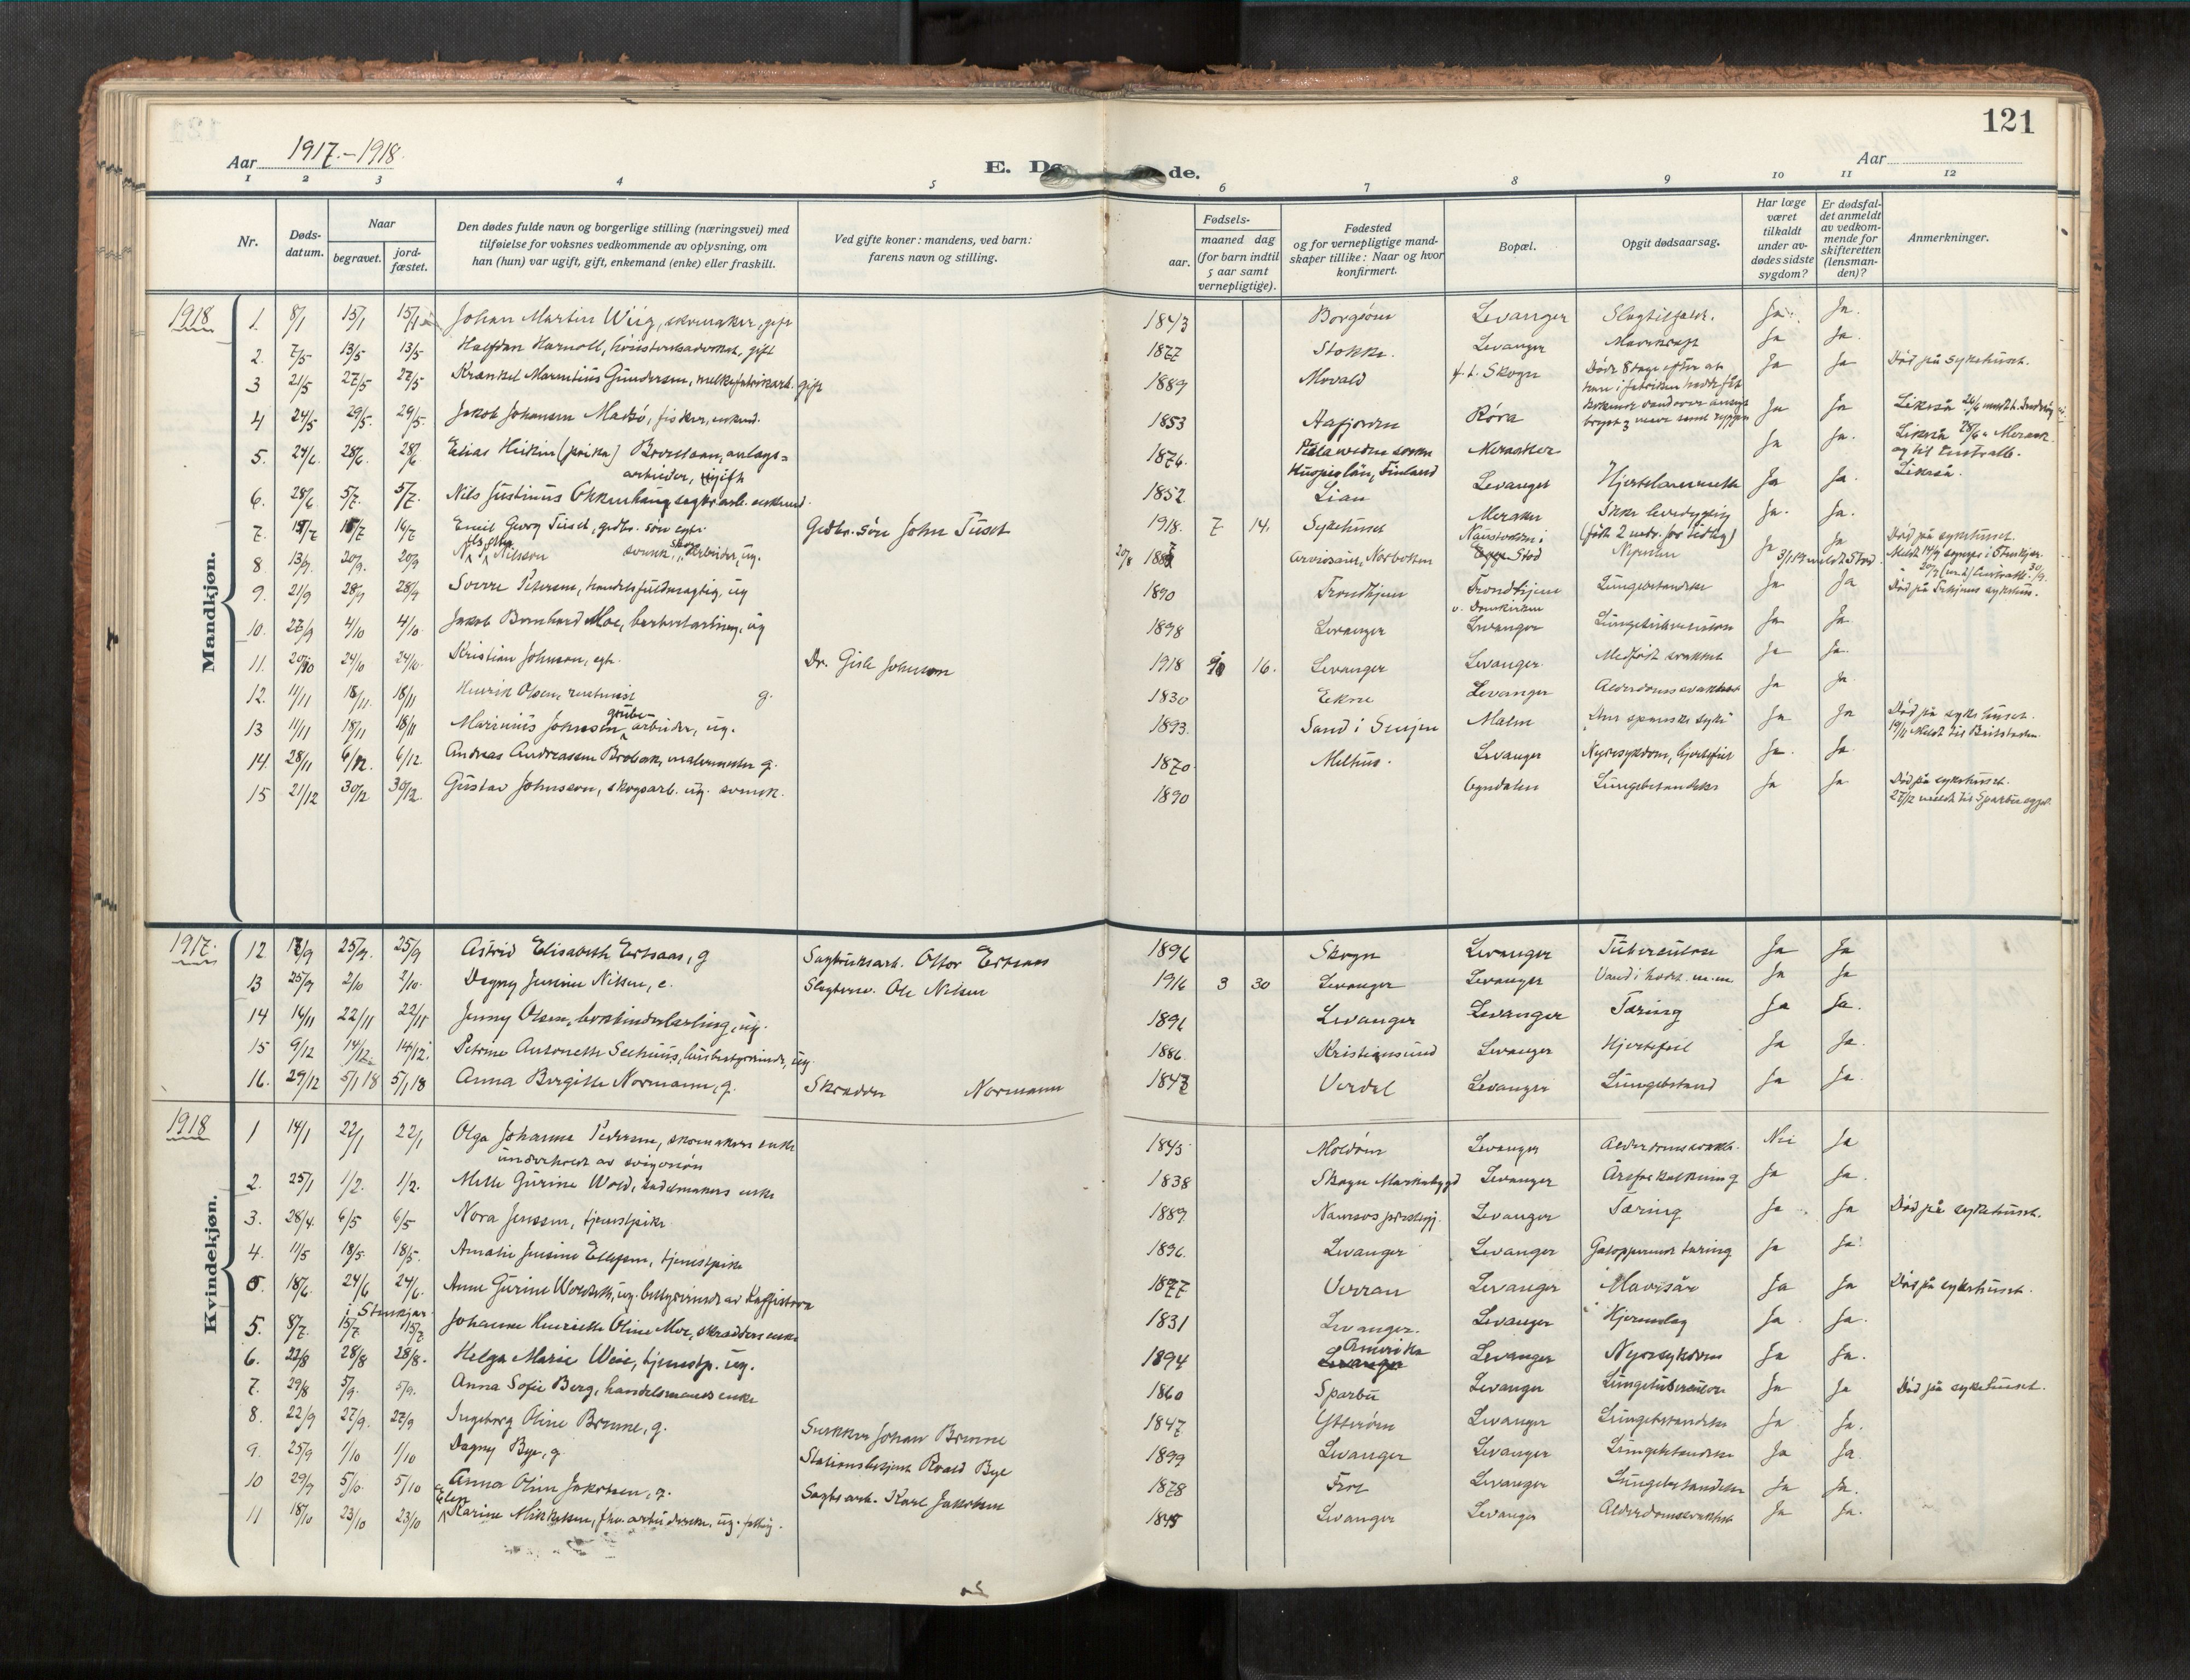 121
Aar 1917-1918.
E. Dø de.
Aar
1 2 3 4 5 6 7 8 9 10 11 12
Nr.
Døds-
datum.
Naar
begravet.
jord-
fæstet.
Den dødes fulde navn og borgerlige stilling (næringsvei) med
tilføielse for voksnes vedkommende av oplysning, om
han (hun) var ugift, gift, enkemand (enke) eller fraskilt.
Ved gifte koner: mandens, ved barn:
farens navn og stilling.
Fødsels-
aar.
maaned dag
(for barn indtil
5 aar samt
vernepligtige).
Fødested
og for vernepligtige mand-
skaper tillike: Naar og hvor
konfirmert.
Bopæl.
Opgit dødsaarsag.
Har læge
været
tilkaldt
under av-
dødes sidste
sygdom?
Er dødsfal-
det anmeldt
av vedkom-
mende for
skifteretten
(lensman-
den)?
Anmerkninger.
Mandkjøn.
1918
1. 8/1 15/1 15/1 Johan Martin Wiig, skomaker, gift 1843 Borgsöen Levanger Slagtilfælde. Ja. Ja.
2. 7/5 13/5 13/5 Halfdan gift 1877 Stokke. Levanger Mavekræft Ja Ja. Død på sykehuset.
3 21/5 27/5 27/5 Gundersen, gift 1889 Movald Skogn Døde 8 dage efter at Ja Ja
han i fabriken hadde fåt
kokende vand over ansigt
bryst samt ryggen
4 24/5 29/5. 29/5. Jakob Johansen fisker, enkem. 1853 Aafjorden Röra Ja Ja
5. 24/6. 28/6. 28/6 Elias Heikin anlægs=
arbeider, ugift 1876. Finland Meraker Ja Ja.
6. 28/6 5/7. 5/7. Nils Justinus Okkenhaug enkemd. 1852 Lian Levanger Hjertelammelse Ja Ja. Liksyn.
7. 15/7 16/7 16/7 Emil Georg Tuset, grdbr. søn egte. Grdbr. søn John Tuset 1918. 7 14. Sykehuset Meraker Ikke levedygtig Ja. Ja.
(født 2 mdr. for tidlig)
8. 13/9. 20/9. 20/9 Nilsson svensk skogarbeider, ug. 20/8 Norboten Stod Ja Ja Død på sykehuset.
9. 21/9 28/9 28/9 Sverre Petersen, handelsfuldmægtig, ug 1890 Trondhjem Trondhjem Lungebetændelse Ja Ja
v. Domkirken
10. 27/9 4/10 4/10. Jakob Bernhard Moe, ug 1898 Levanger Levanger Lungetuberkulose Ja Ja.
11. 20/10 24/10 24/10. Kristian Johnson, egte. Dr. Gisle Johnson 1918 16. Levanger Levanger Medfødt svakhet Ja Ja.
12. 11/11 18/11. 18/11 Henrik Olsen, g. 1830 Ekne Levanger Alderdomssvakhet Ja Ja
13 11/11 18/11 18/11 Marinius Johnsen, grube-arbeider, ug. 1893. Sand i Senjen Malm Den spanske syke Ja Ja Død på sykehuset.
14. 28/11 6/12. 6/12 Andreas Andreassen Brobak, malermester g. 1870. Melhus. Levanger Nyresykdom, hjertefeil Ja. Ja.
15 21/12 30/12 30/12. Gustav Johnsson, skogsarb. ug. svensk. 1890 Ogndalen Lungebetændelse Ja Ja Død på sykehuset.
27/12 meldt til Sparbu
Kvindekjøn.
1917.
12 17/9 25/9. 25/9 Astrid Elisabeth Ertsaas, g Sagbruksarb. Ottar Ertsaas 1896 Skogn Levanger Tuberculose Ja Ja
13 25/9 2/10 2/10. Dagny Jensine Nilsen, e. Ole Nilsen 1916 3 30 Levanger Levanger Vand i hodet m.m Ja Ja
14 14/11 22/11 22/11 Jenny Olsen, ug. 1896 Levanger Levanger Tæring Ja Ja.
15 9/12 14/12. 14/12. Petrine Antonette Seehuus, husbestyrerinde, ug. 1886. Kristiansund Levanger Hjertefeil Ja Ja.
16. 29/12 5/1 18 5/1 18 Anna Bergitte Normann, g. Skrædder Normann 1847 Verdal Levanger Lungebetænd Ja Ja.
1918
1 14/1 22/1 22/1 Olga Johanne Pedersen, skomakers enke 1843. Moldøen Levanger Alderdomssvakh. Nei Ja
underholdt av svigersøn
2. 25/1 1/2. 1/2. Mette Gurine Wold, sadelmakers enke 1838 Skogn Markabygd Levanger Årsforkalkning Ja Ja.
3. 28/4. 6/5 6/5 Nora Jenssen, tjenestpike 1889 Namsos Levanger Tæring Ja Ja Død på sykehuset.
4. 11/5 18/5. 18/5. Amalie Jensine Ellefsen, tjenestpike 1896. Levanger Levanger Galopperende tæring Ja Ja.
5. 18/6. 24/6 24/6. Anne Gurine ug. bestyrerinde av Kaffistova 1877 Verran Levanger Mavesår Ja Ja Død på sykehuset.
i Stenkjær
5. 8/7. 15/7. 15/7. Johanne Henriette Oline Moe, skrædders enke 1831 Levanger. Levanger Hjerneslag Ja Ja.
6. 22/8 28/8 28/8. Helga Marie tjenestp. ug. 1894 Amerika Levanger Nyresykdom Ja Ja.
7. 29/8 5/9. 5/9. Anna Sofie Berg, handelsmands enke 1860 Sparbu Levanger Lungetuberculose Ja Ja Død på sykehuset.
8. 22/9 27/9. 27/9 Ingeborg Oline Brenne, g. Snekker Johan Brenne 1847 Ytterøen Levanger Lungebetændelse Ja Ja.
9. 25/9 1/10 1/10 Dagny Bye, g. Stationsbetjent Roald Bye 1899 Levanger Levanger Lungebetændelse Ja Ja.
10 29/9 5/10. 5/10 Anna Oline Jakobsen, g. Sagbr.arb. Karl Jakobsen 1878 Frol Levanger Lungebetændelse Ja Ja.
11 18/10 23/10 23/10 Elen Karine Mikkelsen, fhv. arbeiderske, ug. fattig. 1845 Levanger Levanger Alderdomssvakhet Ja Ja.